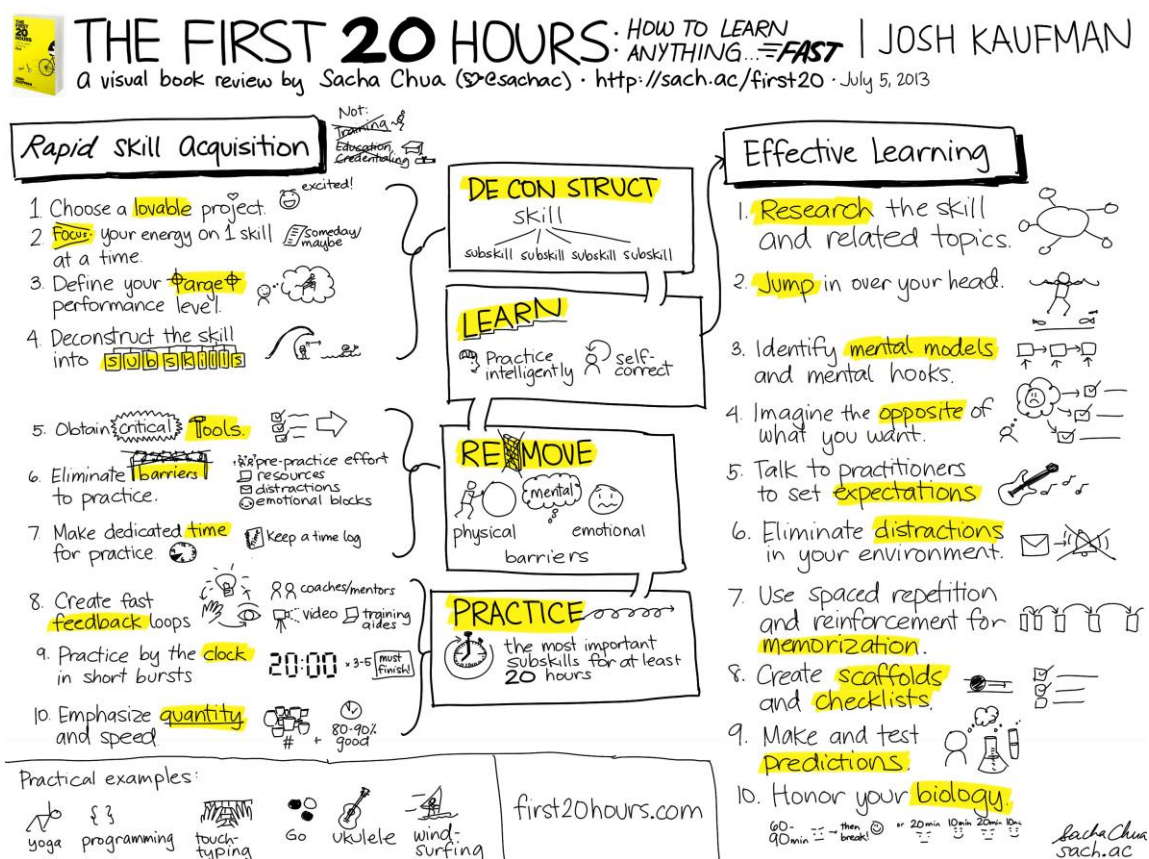 THE FIRST 20 HOURS: HOW TO LEARN
ANYTHING... FAST | JOSH KAUFMAN
a visual book review by Sacha Chua (@sachac) · http://sach.ac/first20 · July 5, 2013
THE
FIRST
20
HOURS
Rapid Skill Acquisition
Not:
Training
Education
Credentialing
1. Choose a lovable project.
excited!
2. Focus your energy on 1 skill
at a time.
someday/
maybe
3. Define your target
performance level.
4. Deconstruct the skill
into subskills
5. Obtain critical Tools.
6. Eliminate barriers
to practice.
pre-practice effort
resources
distractions
emotional blocks
7. Make dedicated time
for practice.
Keep a time log
8. Create fast
feedback loops
coaches/mentors
video
training
aides
9. Practice by the clock
in short bursts
20:00 × 3-5
must
finish!
10. Emphasize quantity
and speed
# + 80-90%
good
DECONSTRUCT
skill
subskill subskill subskill subskill
LEARN
Practice
intelligently
self-
correct
REMOVE
physical
mental
emotional
barriers
PRACTICE
the most important
subskills for at least
20 hours
Effective Learning
1. Research the skill
and related topics.
2. Jump in over your head.
3. Identify mental models
and mental hooks.
4. Imagine the opposite of
what you want.
5. Talk to practitioners
to set expectations
6. Eliminate distractions
in your environment.
7. Use spaced repetition
and reinforcement for
memorization.
8. Create scaffolds
and checklists.
9. Make and test
predictions.
10. Honor your biology.
60-
90min → then
break!
or 20min 10min 20min 10min
Practical examples:
yoga
{ }
programming
touch-
typing
Go
ukulele
wind-
surfing
first20hours.com
Sacha Chua
sach.ac